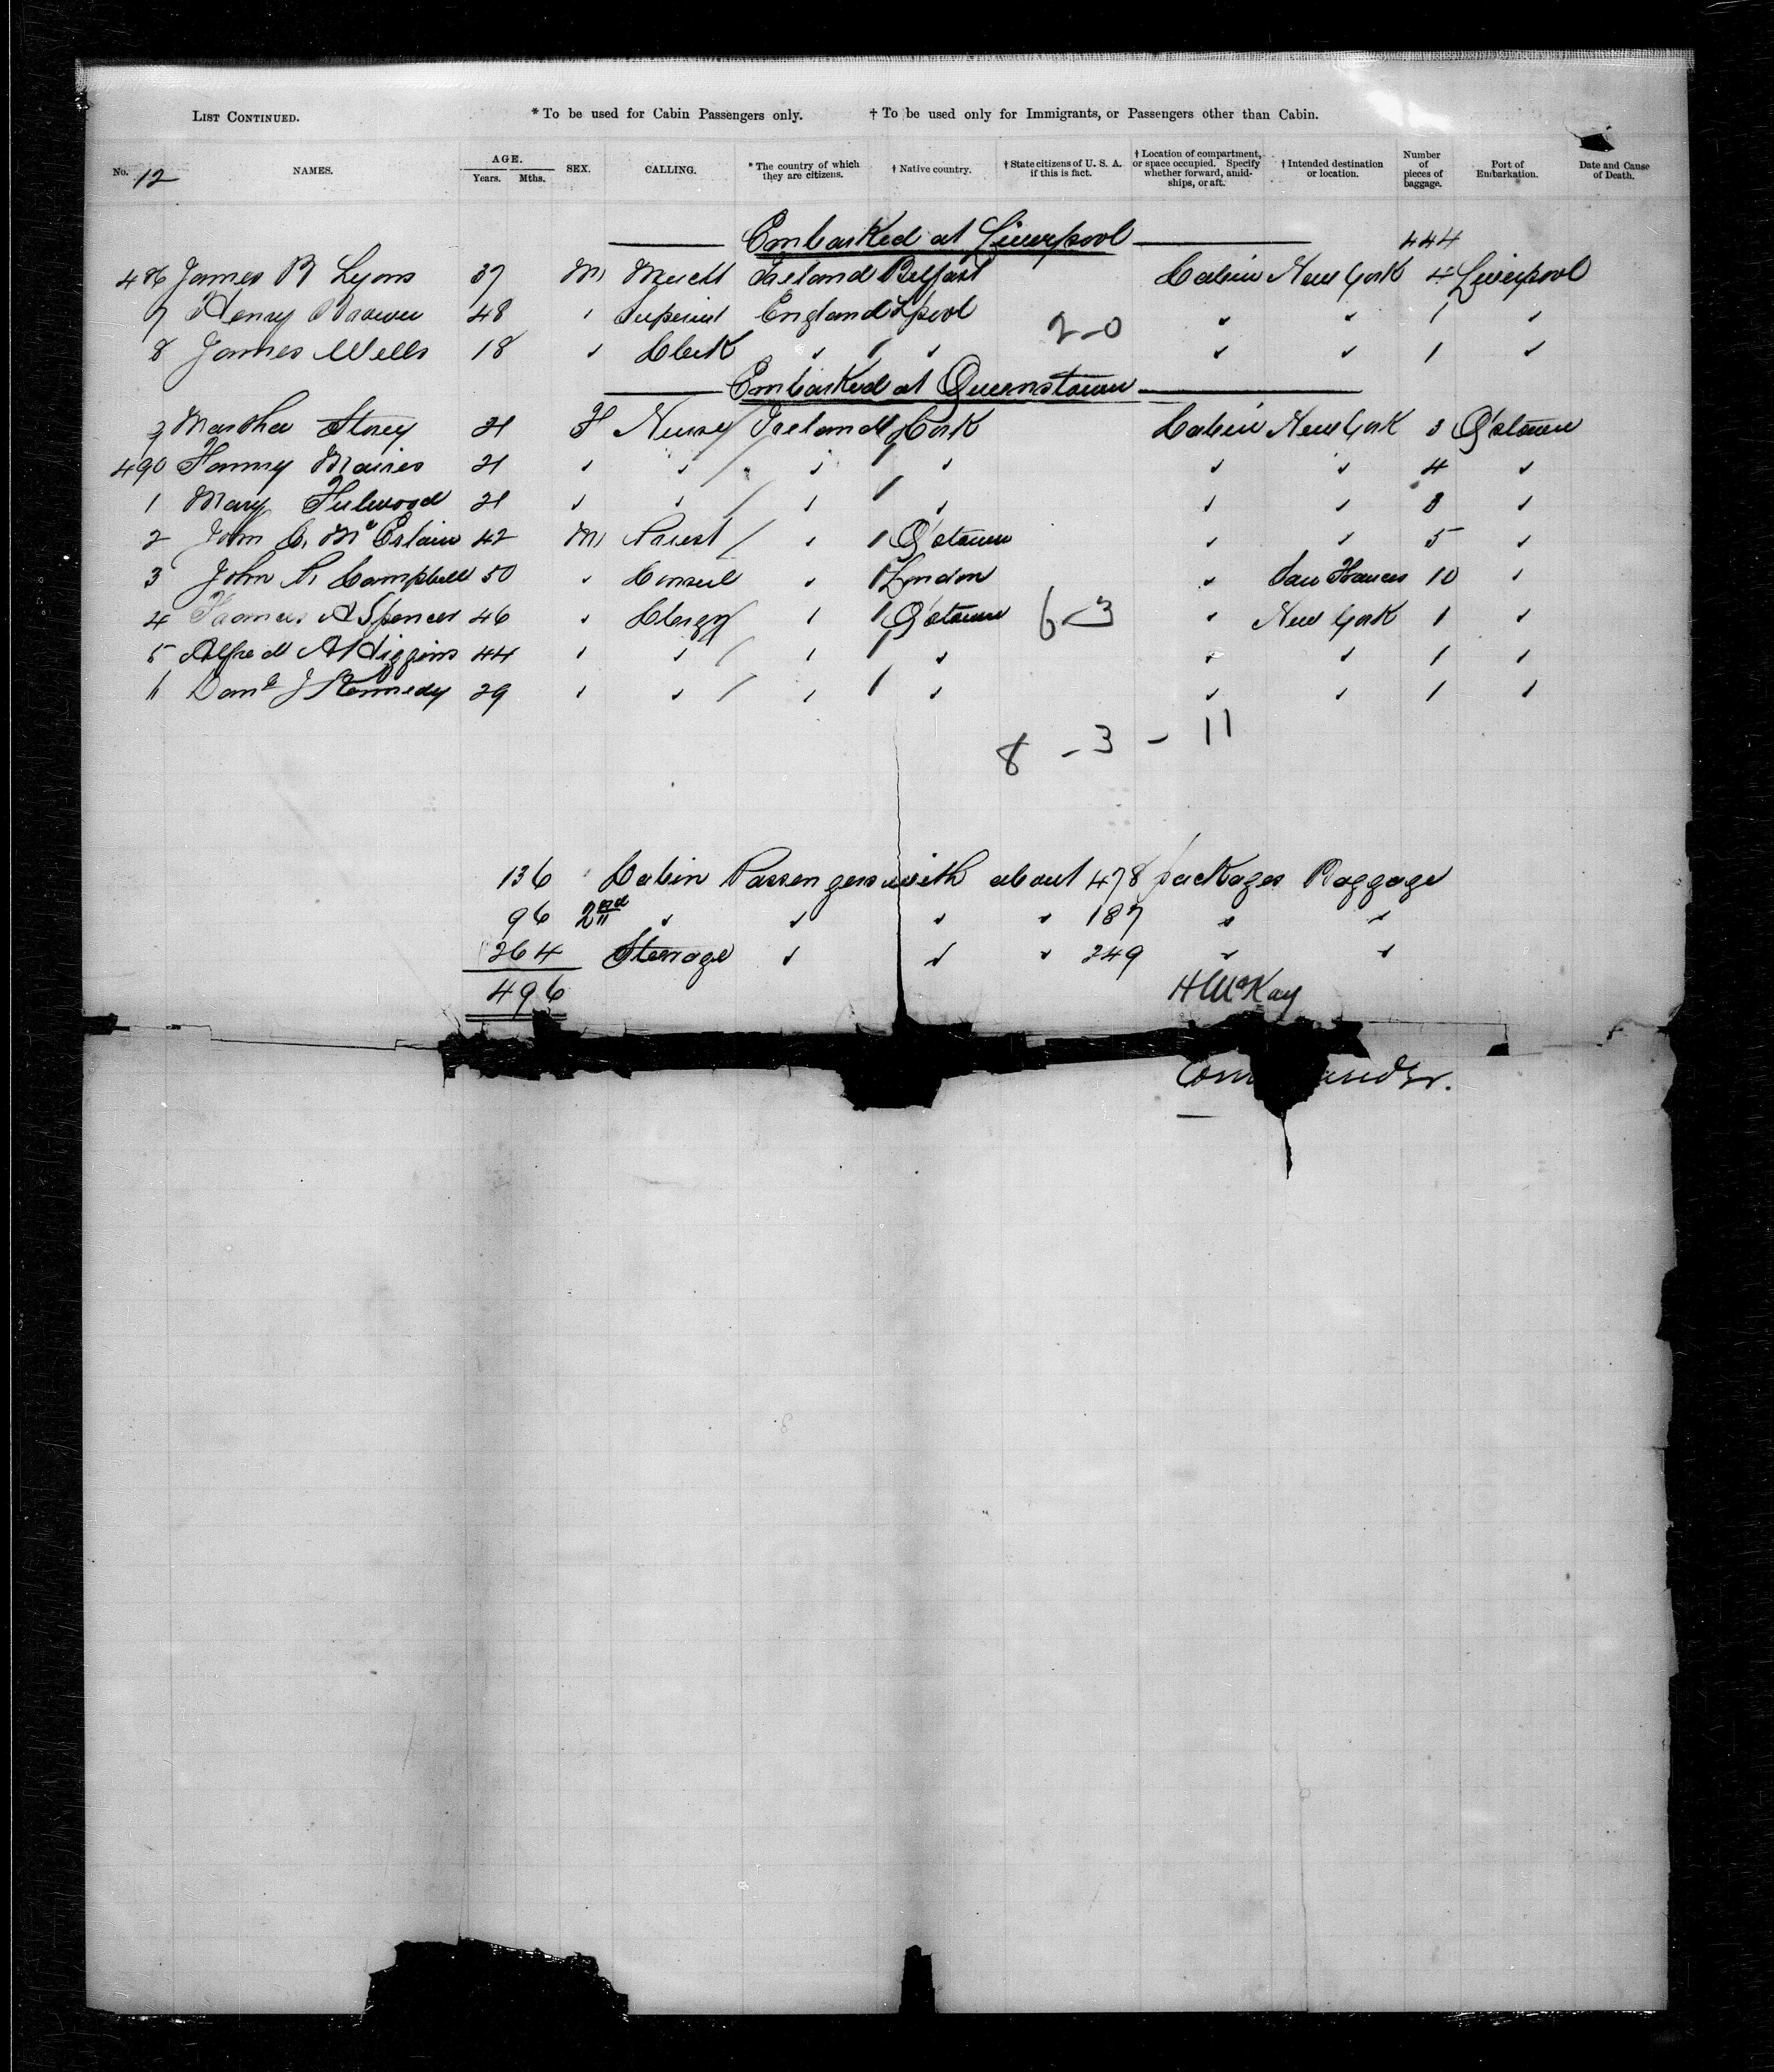 LIST CONTINUED. * To be used for Cabin Passengers only. † To be used only for Immigrants, or Passengers other than Cabin.
No. 12 NAMES. AGE. Years. Mths. SEX. CALLING. * The country of which they are citizens. † Native country. † State citizens of U. S. A. if this is fact. † Location of compartment, or space occupied. Specify whether forward, amidships, or aft. † Intended destination or location. Number of pieces of baggage. Port of Embarkation. Date and Cause of Death.
Embarked at Liverpool 444
486 James R Lyons 37 M Ireland Belfast Cabin New York 4 Liverpool
7 Henry 48 England Lpool 1
2-0
8 James Wells 18 Clerk 1
Embarked at Queenstown
Martha Storey 21 F Nurse Ireland Cork Cabin New York 3 Q'stown
490 Fanny 21 4
1 Mary Fulwood 21 3
2 John 42 M Priest Q'stown 5
3 John P. Campbell 50 Consul London San Frances 10
4 A Spencer 46 Clergy Q'stown 6-3 New York 1
5 Alfred A Higgins 44 1
6 Danl J Kennedy 29 1
8 - 3 - 11
136 Cabin Passengers with about 478 packages Baggage
96 2nd 187
264 Steerage 249
496 H McKay